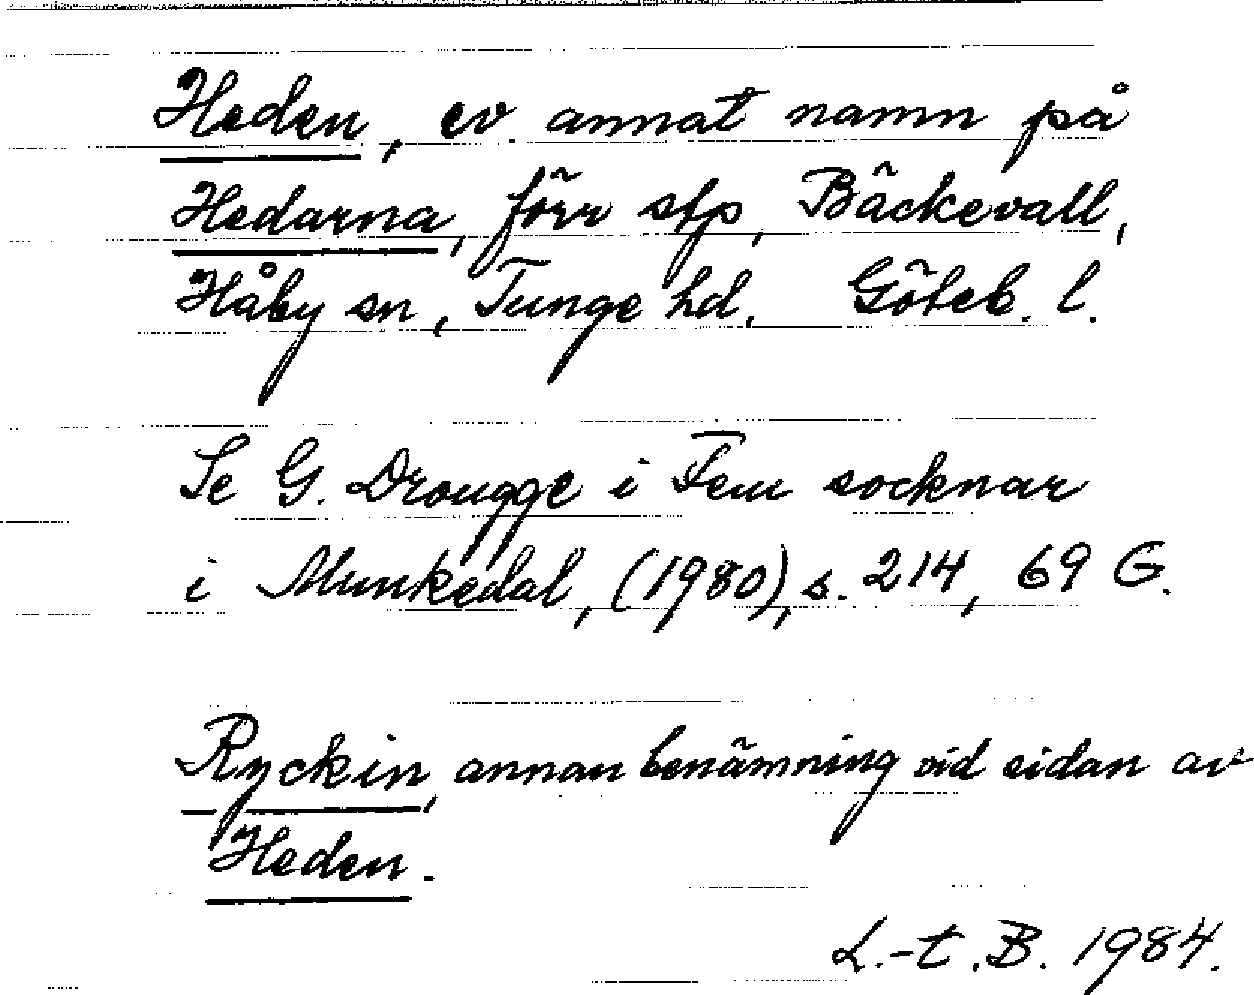 Heden, ev. annat namn på
Hedarna, förr stp, Bäckevall,
Håby sn, Tunge hd. Göteb. l.
Se G. Drougge i Fem socknar
i Munkedal, (1980), s. 214, 69 G.
Ryckin, annan benämning vid sidan av
Heden.
L.-t. B. 1984.